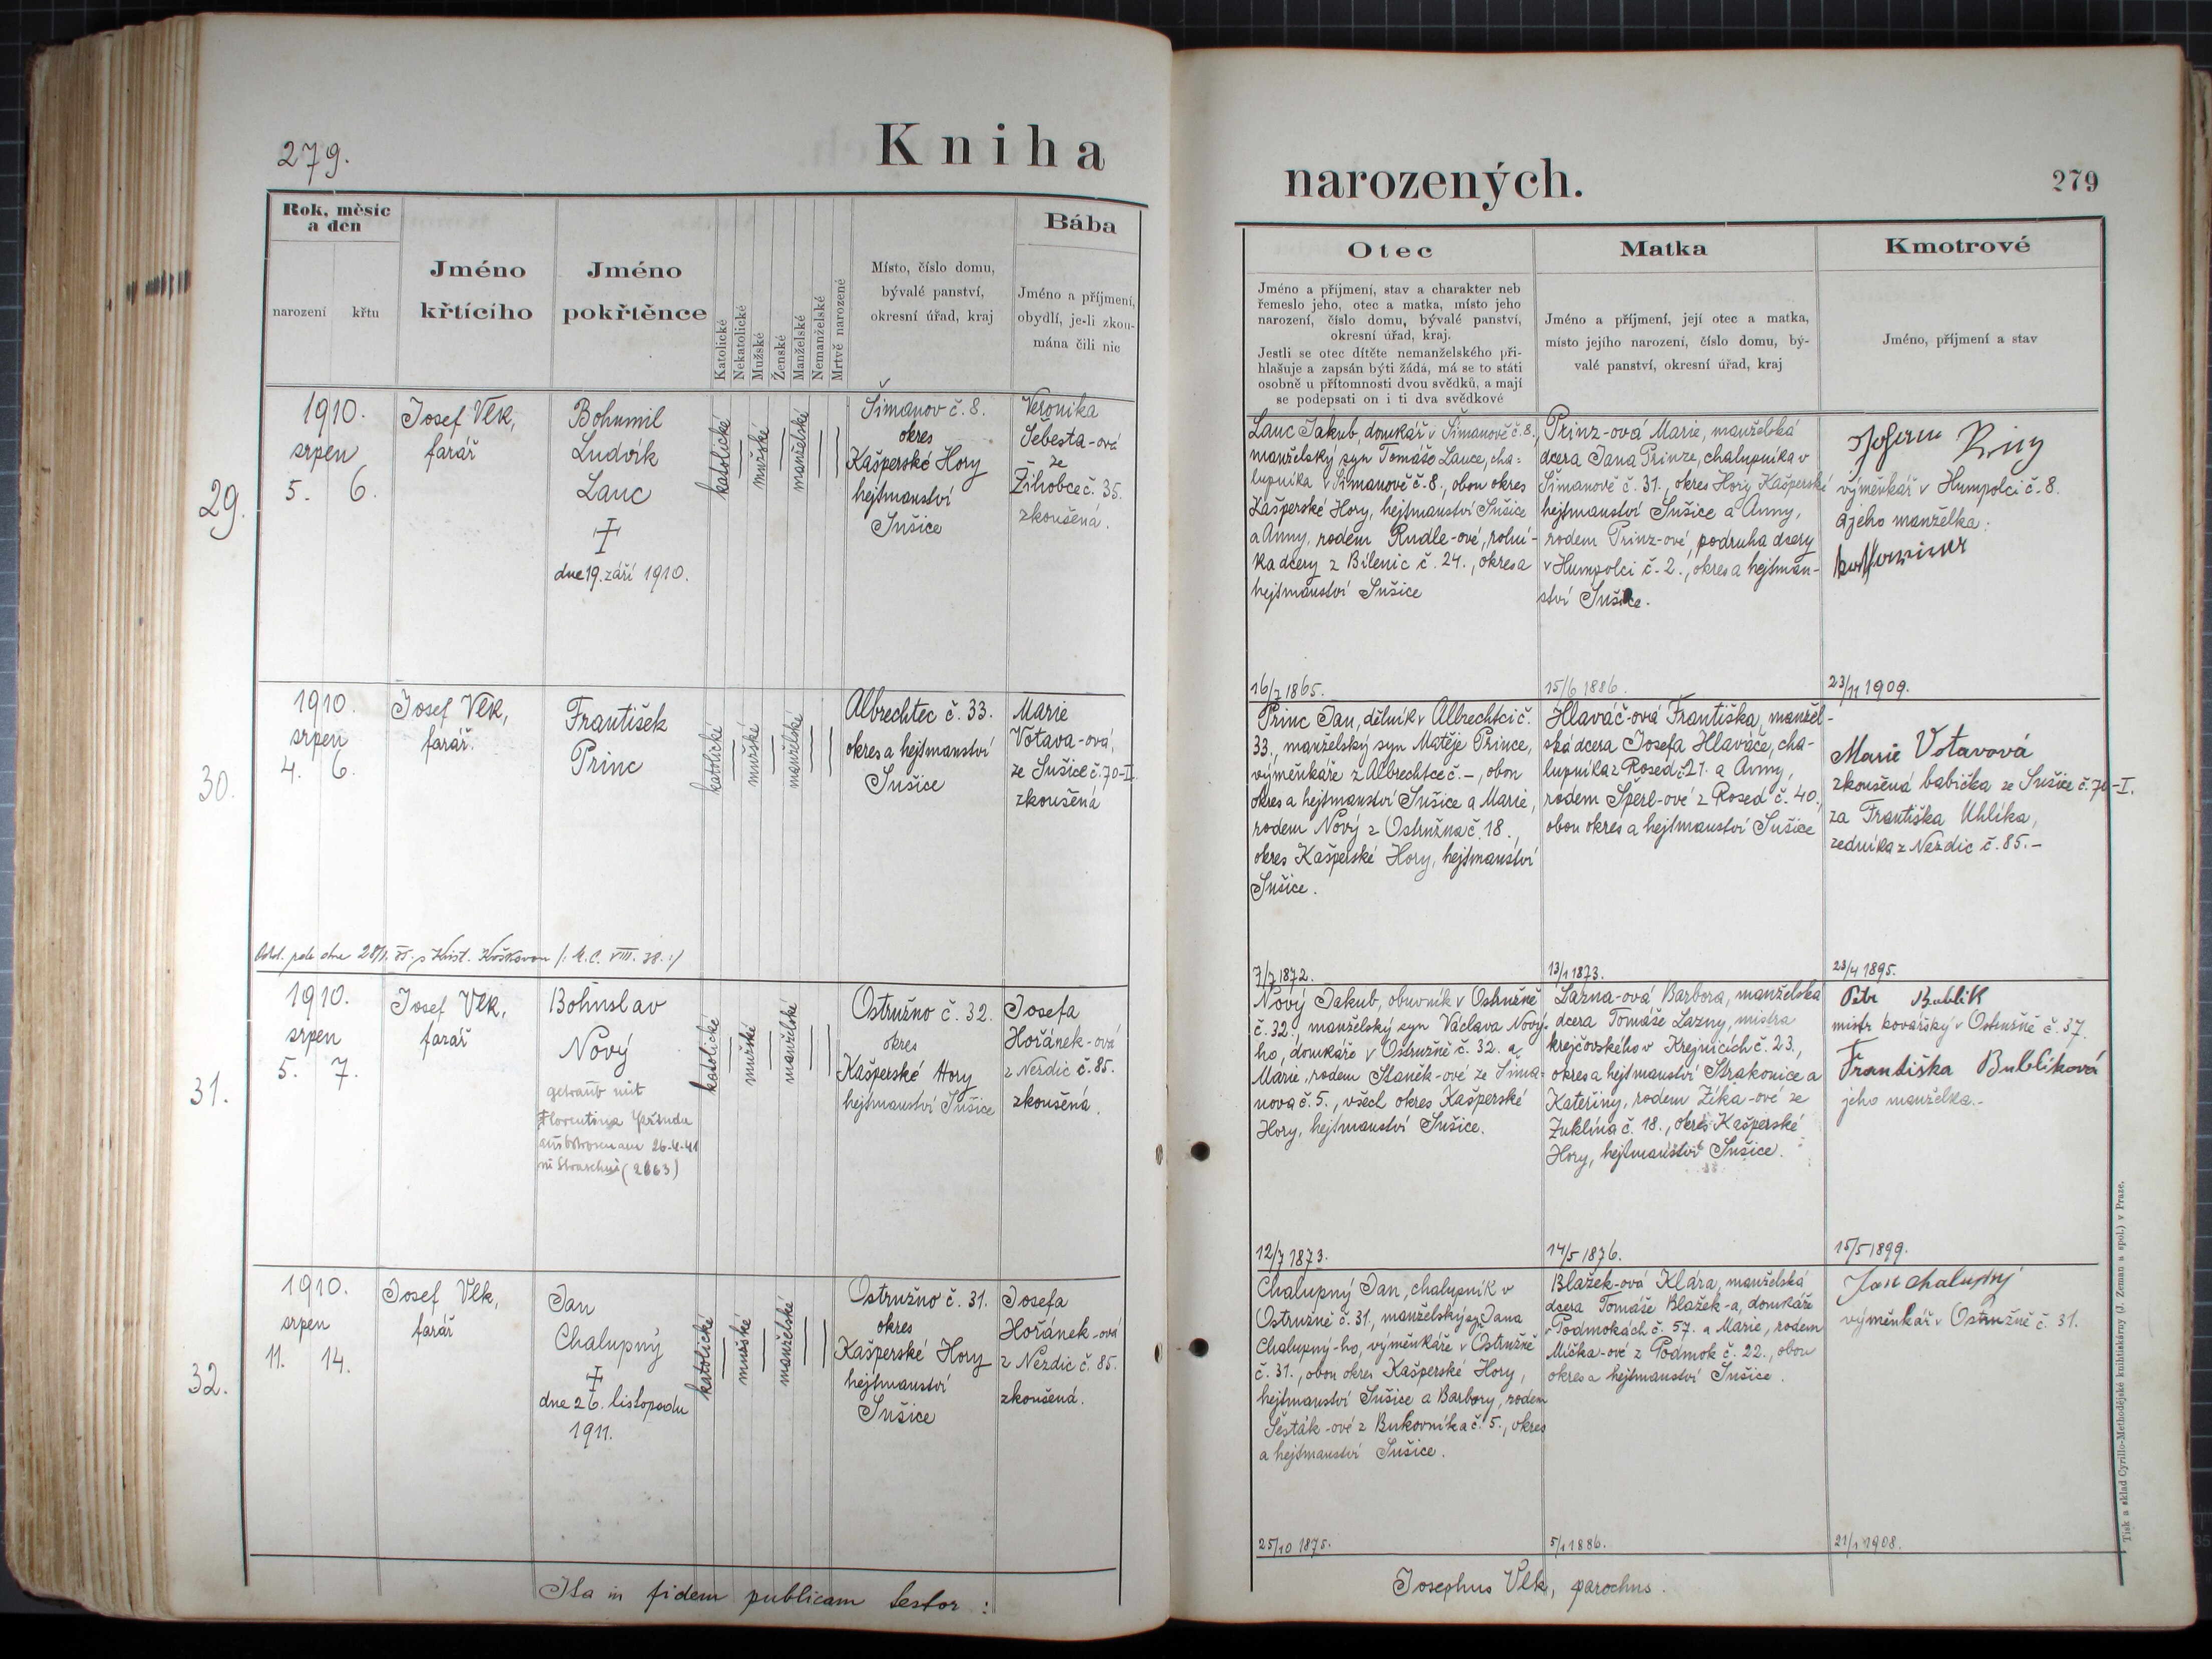 279.
Kniha
Rok, měsíc
a den
narození
křtu
Jméno
křtícího
Jméno
pokřtěnce
Katolické
Nekatolické
Mužské
Ženské
Manželské
Nemanželské
Mrtvě narozené
Místo, číslo domu,
bývalé panství,
okresní úřad, kraj
Bába
Jméno a příjmení,
obydlí, je-li zkou-
mána čili nic
29.
1910.
srpen
5. 6.
Josef Vlk,
farář
Bohumil
Ludvík
Lanc
†
dne 19. září 1910.
katolické
mužské
manželské
Šimanov č. 8.
okres
Kašperské Hory
hejtmanství
Sušice
Veronika
Šebesta-ová
ze
Žihobce č. 35.
zkoušená.
30.
1910.
srpen
4. 6.
Josef Vlk,
farář.
František
Princ
katolické
mužské
manželské
Albrechtec č. 33.
okres a hejtmanství
Sušice
Marie
Votava-ová,
ze Sušice č. 70-I.
zkoušená
dne
31.
1910.
srpen
5. 7.
Josef Vlk,
farář
Bohuslav
Nový
getraut mit
Florentina
26.4.41
(2663)
katolické
mužské
manželské
Ostružno č. 32.
okres
Kašperské Hory
hejtmanství Sušice
Josefa
Hořánek-ová
z Nezdic č. 85.
zkoušená.
32.
1910.
srpen
11. 14.
Josef Vlk,
farář
Jan
Chalupný
†
dne 26. listopadu
1911.
katolické
mužské
manželské
Ostružno č. 31.
okres
Kašperské Hory
hejtmanství
Sušice
Josefa
Hořánek-ová
z Nezdic č. 85.
zkoušená.
Ita in fidem publicam testor :
narozených.
279
Otec
Jméno a příjmení, stav a charakter neb
řemeslo jeho, otec a matka, místo jeho
narození, číslo domu, bývalé panství,
okresní úřad, kraj.
Jestli se otec dítěte nemanželského při-
hlašuje a zapsán býti žádá, má se to státi
osobně u přítomnosti dvou svědků, a mají
se podepsati on i ti dva svědkové
Matka
Jméno a příjmení, její otec a matka,
místo jejího narození, číslo domu, bý-
valé panství, okresní úřad, kraj
Kmotrové
Jméno, příjmení a stav
Lanc Jakub, domkář v Šimanově č. 8.,
manželský syn Tomáše Lance, cha-
lupníka v Šimanově č. 8., obou okres
Kašperské Hory, hejtmanství Sušice
a Anny, rodem Rudle-ové, rolní-
ka dcery z Bílenic č. 24., okres a
hejtmanství Sušice
16/7 1865.
Prinz-ová Marie, manželská
dcera Jana Prinze, chalupníka v
Šimanově č. 31., okres Hory Kašperské
hejtmanství Sušice a Anny,
rodem Prinz-ové, podruha dcery
v Humpolci č. 2., okres a hejtman-
ství Sušice.
15/6 1886.
výměnkář v Humpolci č. 8.
a jeho manželka:
23/11 1909.
Princ Jan, dělník v Albrechtci č.
33., manželský syn Matěje Prince,
výměnkáře z Albrechtce č. -, obou
okres a hejtmanství Sušice a Marie,
rodem Nový z Ostružna č. 18.,
okres Kašperské Hory, hejtmanství
Sušice.
7/7 1872.
Hlaváč-ová Františka, manžel-
ská dcera Josefa Hlaváče, cha-
lupníka z Rosed č. 21. a Anny,
rodem Šperl-ové z Rosed č. 40.,
obou okres a hejtmanství Sušice
13/1 1873.
Marie Votavová
zkoušená babička ze Sušice č. 70-I.
za Františka Uhlíka,
zedníka z Nezdic č. 85.-
23/4 1895.
Nový Jakub, obuvník v Ostružně
č. 32., manželský syn Václava Nový-
ho, domkáře v Ostružně č. 32. a
Marie, rodem Staněk-ové ze Šima-
nova č. 5., všech okres Kašperské
Hory, hejtmanství Sušice.
12/7 1873.
Lazna-ová Barbora, manželská
dcera Tomáše Lazny, mistra
krejčovského v Krejnicích č. 23.,
okres a hejtmanství Strakonice a
Kateřiny, rodem Zíka-ové ze
Zuklína č. 18., okres Kašperské
Hory, hejtmanství Sušice.
14/5 1876.
Petr Bublik
mistr kovářský v Ostružně č. 37.
Františka Bublíková
jeho manželka.-
15/5 1899.
Chalupný Jan, chalupník v
Ostružně č. 31., manželský syn Jana
Chalupný-ho, výměnkáře v Ostružně
č. 31., obou okres Kašperské Hory,
hejtmanství Sušice a Barbory, rodem
Šesták-ové z Bukovníka č. 5., okres
a hejtmanství Sušice.
25/10 1875.
Blažek-ová Klára, manželská
dcera Tomáše Blažek-a, domkáře
v Podmokách č. 57. a Marie, rodem
Mička-ové z Podmok č. 22., obou
okres a hejtmanství Sušice.
5/1 1886.
Jan Chalupný
výměnkář v Ostružně č. 31.
21/1 1908.
Josephus Vlk, parochus.
Tisk a sklad Cyrillo-Methodějské knihtiskárny (J. Zeman a spol.) v Praze.